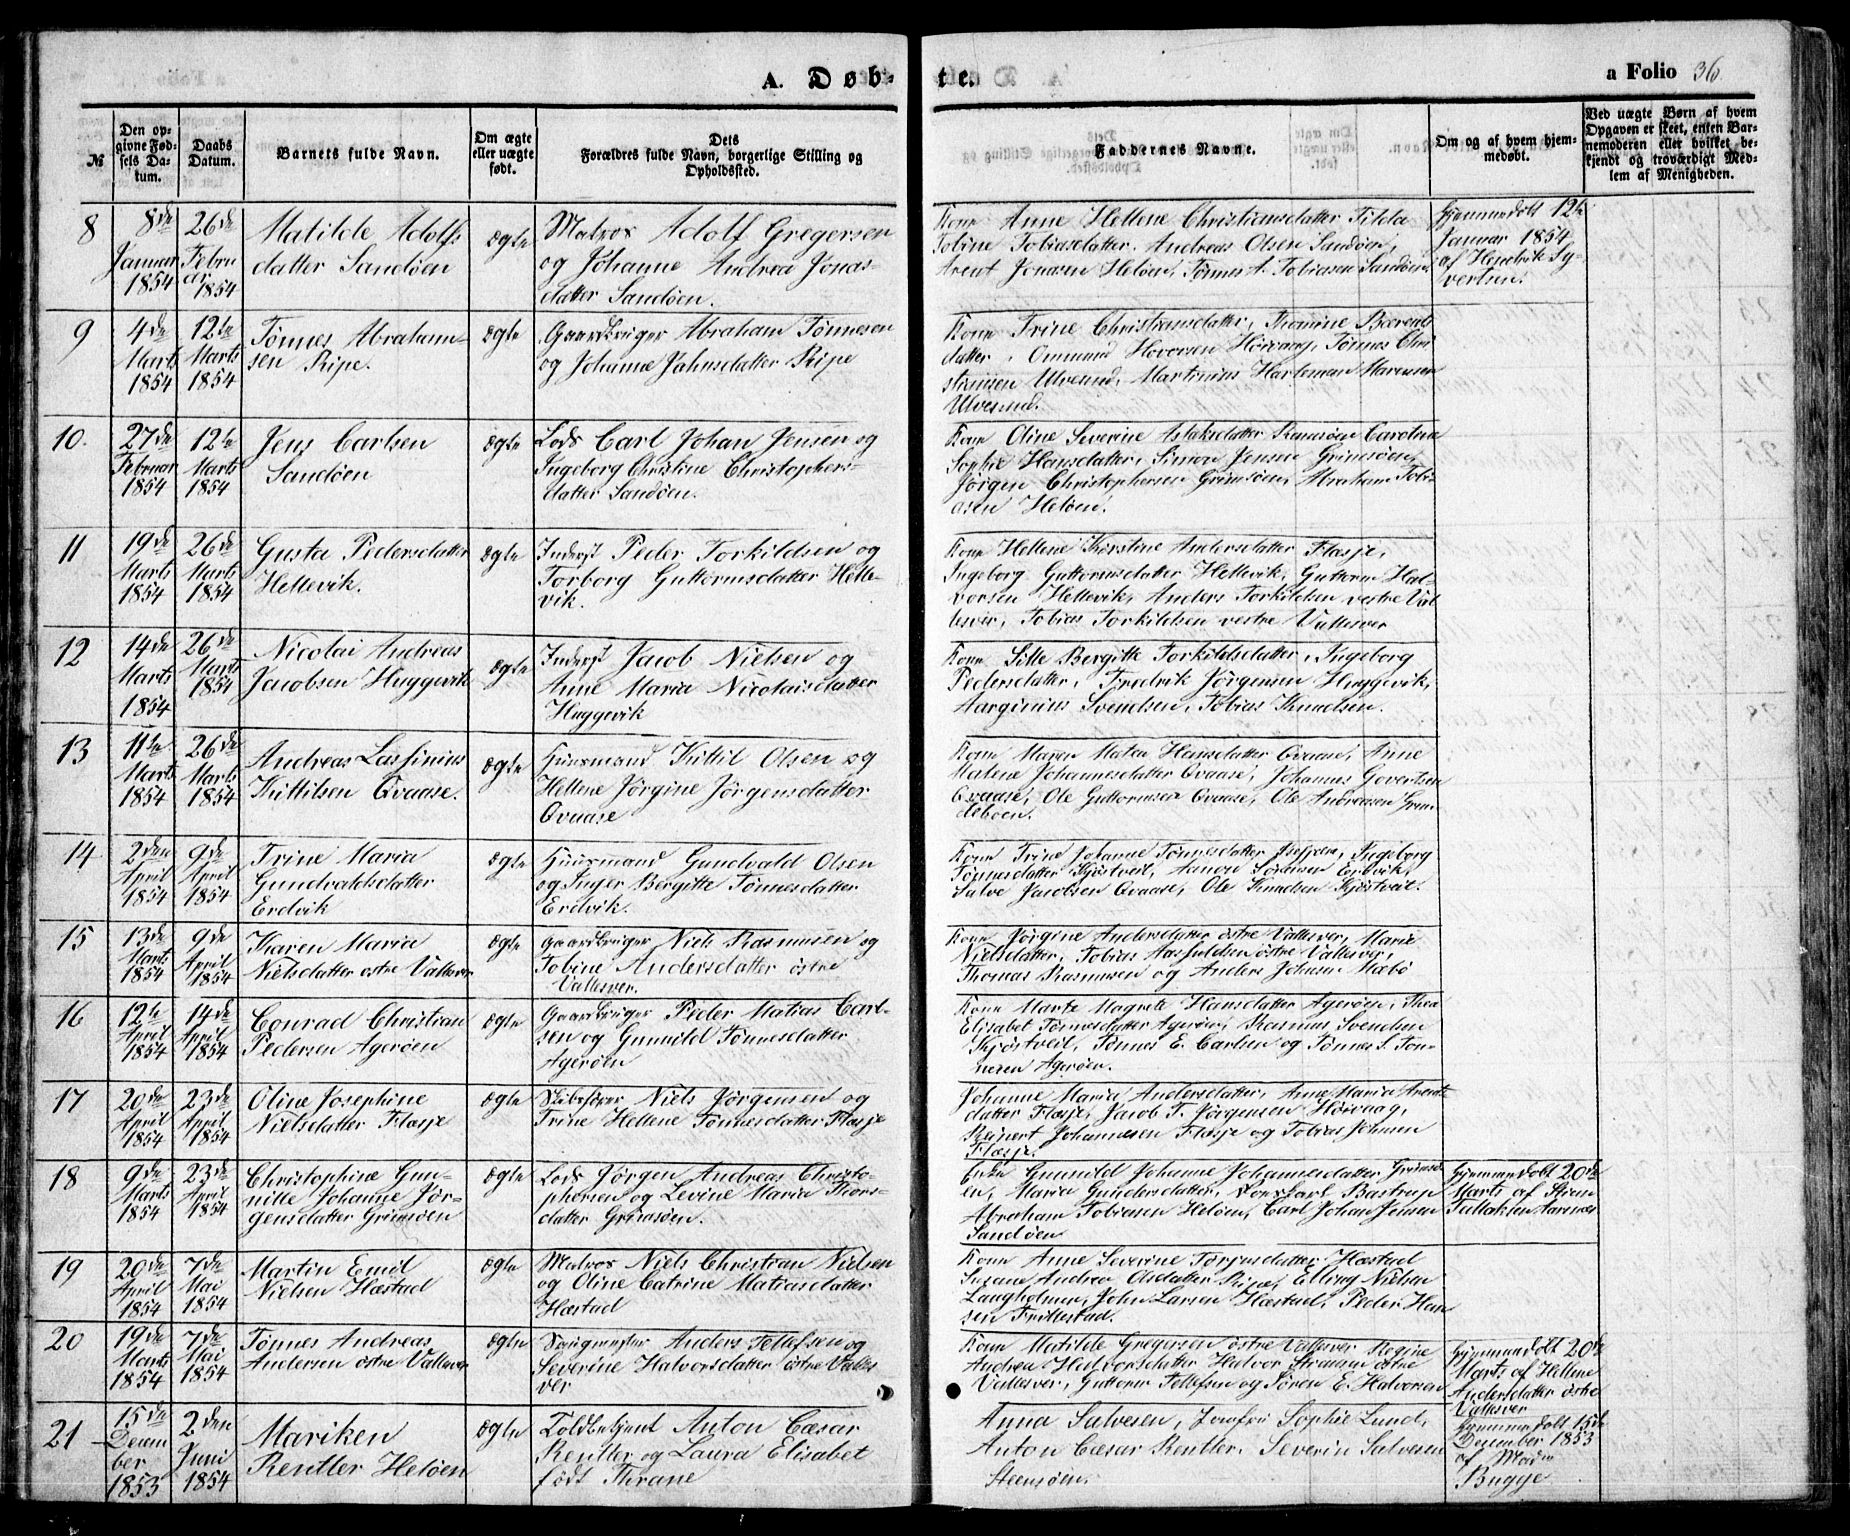 A. Døb-
te.
a Folio 36.
№
Den op-
givne Fød-
sels Da-
tum.
Daabs
Datum.
Barnets fulde Navn.
Om ægte
eller uægte
født.
Dets
Forældres fulde Navn, borgerlige Stilling og
Opholdssted.
Faddernes Navne.
Om og af hvem hjem-
medøbt.
Ved uægte Børn af hvem
Opgaven er skeet, enten Bar-
nemoderen eller hvilket be-
kjendt og troværdigt Med-
lem af Menigheden.
8
8de
Januar
1854
26de
Febru
ar
1854
Matilde Adolfs
datter Sandøen
ægte
Matros Adolf Gregersen
og Johanne Andrea Jonas-
datter Sandøen.
Kone Anne Hellene Christiansdatter Tilda
Tobine Tobiasdatter. Andreas Olsen Sandøen,
Arent Jonasen Heløen, Tønnes A. Tobiasen Sandøen.
Hjemmedøbt 12te
Januar 1854
af Hendrik Sy-
vertsen.
9
4de
Marts
1854
12te
Marts
1854
Tønnes Abraham-
sen Ripe.
ægte
Gaardbruger Abraham Tønnesen
og Johanne Jahnsdatter Ripe
Kone Trine Christiansdatter, Thomine Bærents
datter, Ommund Hovorsen Hørvaag, Tønnes Chri
stiansen Ulvesund, Martinius Harleman Marensen
Ulvesund.
10.
27de
Februar
1854
12te
Marts
1854
Jens Carlsen
Sandøen
ægte
Lods Carl Johan Jensen og
Ingeborg Christine Christophers-
datter Sandøen.
Kone Oline Severine Aslaksdatter Ramsøen Carolina
Sophie Hansdatter, Simon Jensen Grimsøen,
Jørgen Christophersen Grimsøen, Abraham Tobi-
asen Heløen.
11
19de
Marts
1854
26de
Marts
1854
Gusta Pedersdatter
Hellevik.
ægte
Inderst Peder Torkildsen og
Torborg Guttormsdatter Helle-
vik.
Kone Hellene Kirstine Andersdatter Flasje,
Ingeborg Guttormsdatter Hellevik, Guttorm Hal-
vorsen Hellevik, Anders Torkildsen vestre Val
lesver, Tobias Torkildsen vestre Vallesver
12
14de
Marts
1854
26de
Marts
1854
Nicolai Andreas
Jacobsen Huggevik
ægte
Inderst Jacob Nielsen og
Anne Maria Nicolaisdatter
Huggevik
Kone Sille Bergitte Torkildsdatter, Ingeborg
Pedersdatter, Fredrik Jørgensen Huggevik,
Aarginius Svendsen, Tobias Knudsen.
13
11te
Marts
1854
26de
Marts
1854
Andreas Lassinius
Kittilsen Qvaase.
ægte
Huusmand Kittil Olsen og
Hellene Jørgine Jørgensdatter
Qvaase
Kone Maren Matea Hansdatter Qvaase, Anne
Malene Johannesdatter Qvaase, Johannes Govertsen
Qvaase, Ole Guttormsen Qvaase, Ole Andreasen Grun
deboen.
14
2den
April
1854
9de
April
1854
Trine Maria
Gundvaldsdatter
Eredvik
ægte
Huusmand Gundvald Olsen
og Inger Bergitte Tønnesdatter
Eredvik.
Kone Trine Johanne Tønnesdatter Ingeborg
Tønnesdatter Kjøstveit, Aanon Sørensen Eredvik,
Salve Jacobsen Qvaase, Ole Knudsen Kjøstveit.
15
13de
Marts
1854
9de
April
1854
Karen Maria
Nielsdatter østre Vallesver
ægte
Gaardbruger Niels Rasmusen og
Tobine Andersdatter østre
Vallesver.
Kone Jørgine Andersdatter østre Vallesver, Marie
Nielsdatter, Tobias Aasuldsen østre Vallesver,
Thomas Rasmusen og Anders Johnsen Mæbø
16
12te
April
1854
14de
April
1854
Conrad Christian
Pedersen Agerøen
ægte
Gaardbruger Peder Matias Carl-
sen og Gunnild Tønnesdatter
Agerøen
Kone Marte Magrete Hansdatter Agerøen, Thea
Elisabet Tønnesdatter Agerøen, Rasmus Svendsen
Kjøstveit, Tønnes E. Carlsen og Tønnes S. Tøn-
nesen Agerøen.
17
20de
April
1854
23de
April
1854
Oline Josephine
Nielsdatter Flasje
ægte
Skibsfører Niels Jørgensen og
Trine Hellene Tønnesdatter Flasje
Johanne Maria Andersdatter, Anne Maria Arents
datter Flasje, Jacob T. Jørgensen Hørvaag,
Reinert Johannesen Flasje og Tobias Johnsen
Flasje.
18
9de
Marts
1854
23de
April
1854
Christophine Gun-
nille Johanne Jør-
gensdatter Grimsøen
ægte
Lods Jørgen Andreas Christo-
phersen og Levine Maria Thors-
datter Grimsøen.
Enke Gunnild Johanne Johannesdatter Grimsø-
en, Maria Gundersdatter, Bastrup
Abraham Tobiasen Heløen, Carl Johan Jensen
Sandøen
Hjemmedøbt 20de
Marts af Stine
Tallaksen Aarsnes
19
20de
April
1854
7de
Mai
1854
Martin Emil
Nielsen Hæstad
ægte
Matros Niels Christian Nielsen
og Oline Catrine Matiasdatter
Hæstad
Kone Anne Severine Torjusdatter Hæstad
Susane Andrea Olsdatter Ripe, Elling Nielsen
Langholmen, John Larsen Hæstad, Peder Han
sen Trillestad.
20
19de
Marts
1854
7de
Mai
1854
Tønnes Andreas
Andersen østre Vallesver
ægte
Anders Tellefsen og
Severine Halvorsdatter østre Valles
ver
Kone Matilde Gregersen østre Vallesver Regine
Andrea Halvorsdatter Halvor Stiansen østre
Vallesver, Guttorm Tellefsen og Søren E. Halvorsen
Hjemmedøbt 20de
Marts af Hellene
Andersdatter østre
Vallesver
21
15de
Decem
ber
1853
2den
Juni
1854
Mariken
Rentler Heløen
ægte
Toldbetjent Anton Cæsar
Rentler og Laura Elisabet
født Thrane
Anna Salvesen, Jomfru Sophie Lund,
Anton Cæsar Rentler, Severin Salvesen
Steensøen.
Hjemmedøbt 15de
December 1853
af Madm
Bugge